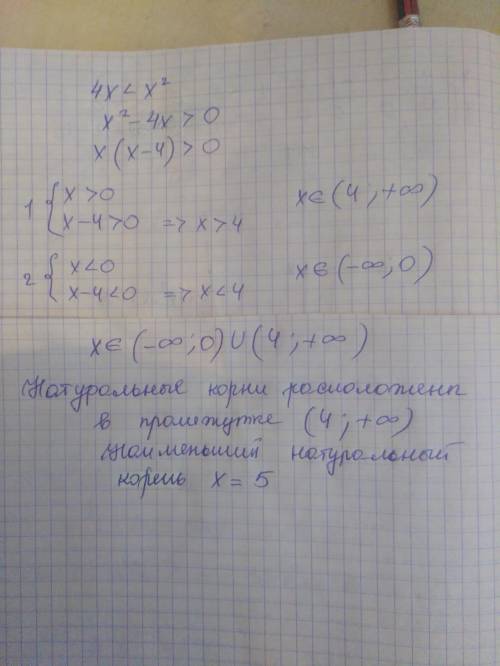 4x < x²
x² - 4x > 0
x(x-4) > 0
1 { x > 0
x - 4 > 0 => x > 4
x ∈ (4; +∞)
2 { x < 0
x - 4 < 0 => x < 4
x ∈ (-∞; 0)
x ∈ (-∞; 0) ∪ (4; +∞)
Натуральные корни расположены
в промежутке (4; +∞)
Наименьший натуральный
корень x = 5